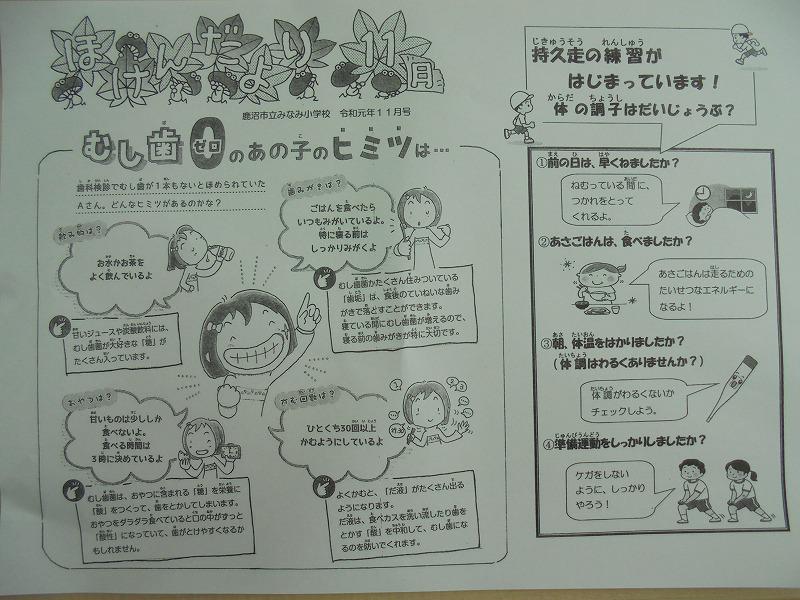 ほけんだより 11月
鹿沼市立みなみ小学校 令和元年11月号
むし歯ゼロのあの子のヒミツは…
歯科検診でむし歯が1本もないとほめられていた
Aさん。どんなヒミツがあるのかな?
飲み物は?
お水かお茶を
よく飲んでいるよ
甘いジュースや炭酸飲料には、
むし歯菌が大好きな「糖」が
たくさん入っています。
歯みがきは?
ごはんを食べたら
いつもみがいているよ。
特に寝る前は
しっかりみがくよ
むし歯菌がたくさん住みついている
「歯垢」は、食後のていねいな歯み
がきで落とすことができます。
寝ている間にむし歯菌が増えるので、
寝る前の歯みがきが特に大切です。
おやつは?
甘いものは少ししか
食べないよ。
食べる時間は
3時に決めているよ
むし歯菌は、おやつに含まれる「糖」を栄養に
「酸」をつくって、歯をとかしてしまいます。
おやつをダラダラ食べていると口の中がずっと
「酸性」になっていて、歯がとけやすくなるか
もしれません。
かむ回数は?
ひとくち30回以上
かむようにしているよ
よくかむと、「だ液」がたくさん出る
ようになります。
だ液は、食べカスを洗い流したり歯を
とかす「酸」を中和して、むし歯にな
るのを防いでくれます。
じきゅうそう れんしゅう
持久走の練習が
はじまっています!
からだ ちょうし
体の調子はだいじょうぶ?
①前の日は、早くねましたか?
ねむっている間に、
つかれをとって
くれるよ。
②あさごはんは、食べましたか?
あさごはんは走るための
たいせつなエネルギーに
なるよ!
③朝、体温をはかりましたか?
(体調はわるくありませんか?)
体調がわるくないか
チェックしよう。
④準備運動をしっかりしましたか?
ケガをしない
ように、しっかり
やろう!